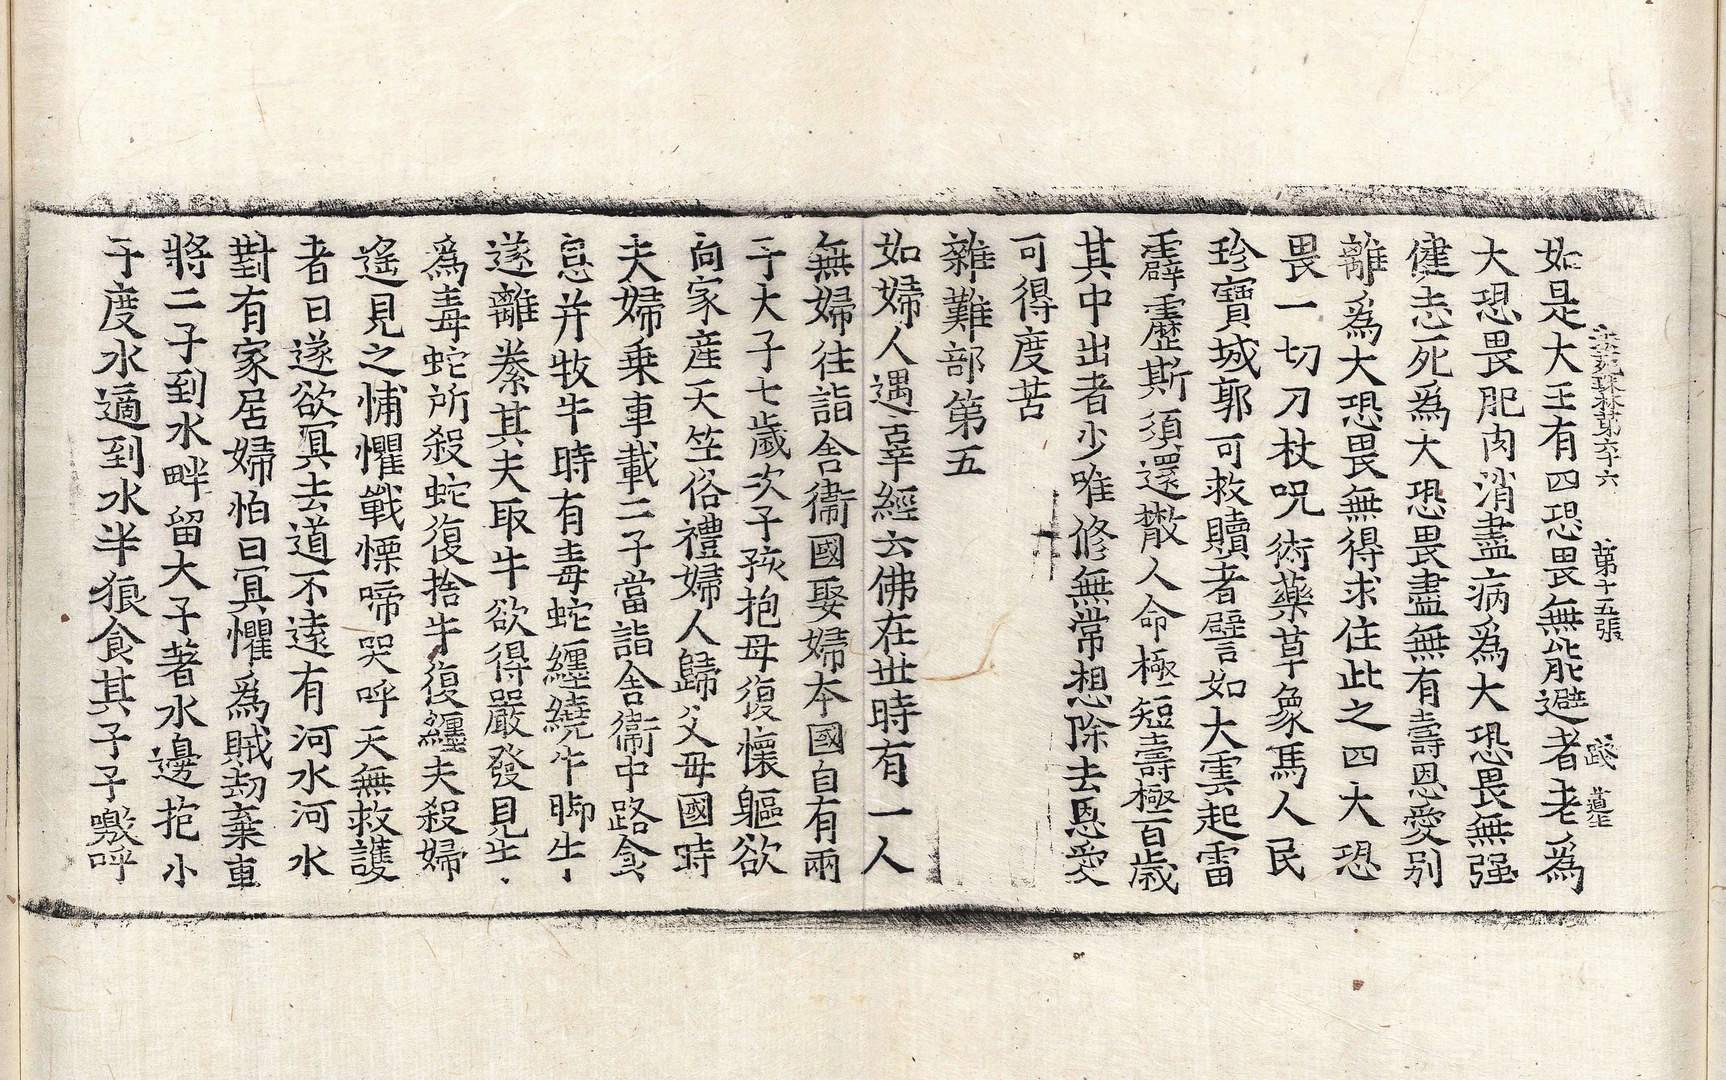 法苑珠林第六十六 第十五張
如是大王有四恐畏無能避者老為
大恐畏肥肉消盡病為大恐畏無强
健志死為大恐畏盡無有壽恩愛别
離為大恐畏無得求住此之四大恐
畏一切刀杖呪術藥草象馬人民
珍寶城郭可救贖者譬如大雲起雷
霹靂斯須還散人命極短壽極百歲
其中出者少唯修無常想除去恩愛
可得度苦
雜難部第五
如婦人遇辜經云佛在世時有一人
無婦往詣舍衛國娶婦本國自有兩
子大子七歲次子孩抱母復懷軀欲
向家産天竺俗禮婦人歸父母國時
夫婦乗車載二子當詣舍衛中路食
息并牧牛時有毒蛇纏繞牛脚牛
遂離絭其夫取牛欲得嚴發見牛
為毒蛇所殺蛇復捨牛復纏夫殺婦
遥見之怖懼戰慄啼哭呼天無救護
者日遂欲冥去道不遠有河水河水
對有家居婦怕日冥懼為賊劫棄車
將二子到水畔留大子著水邊抱小
子度水適到水半狼食其子子噭呼